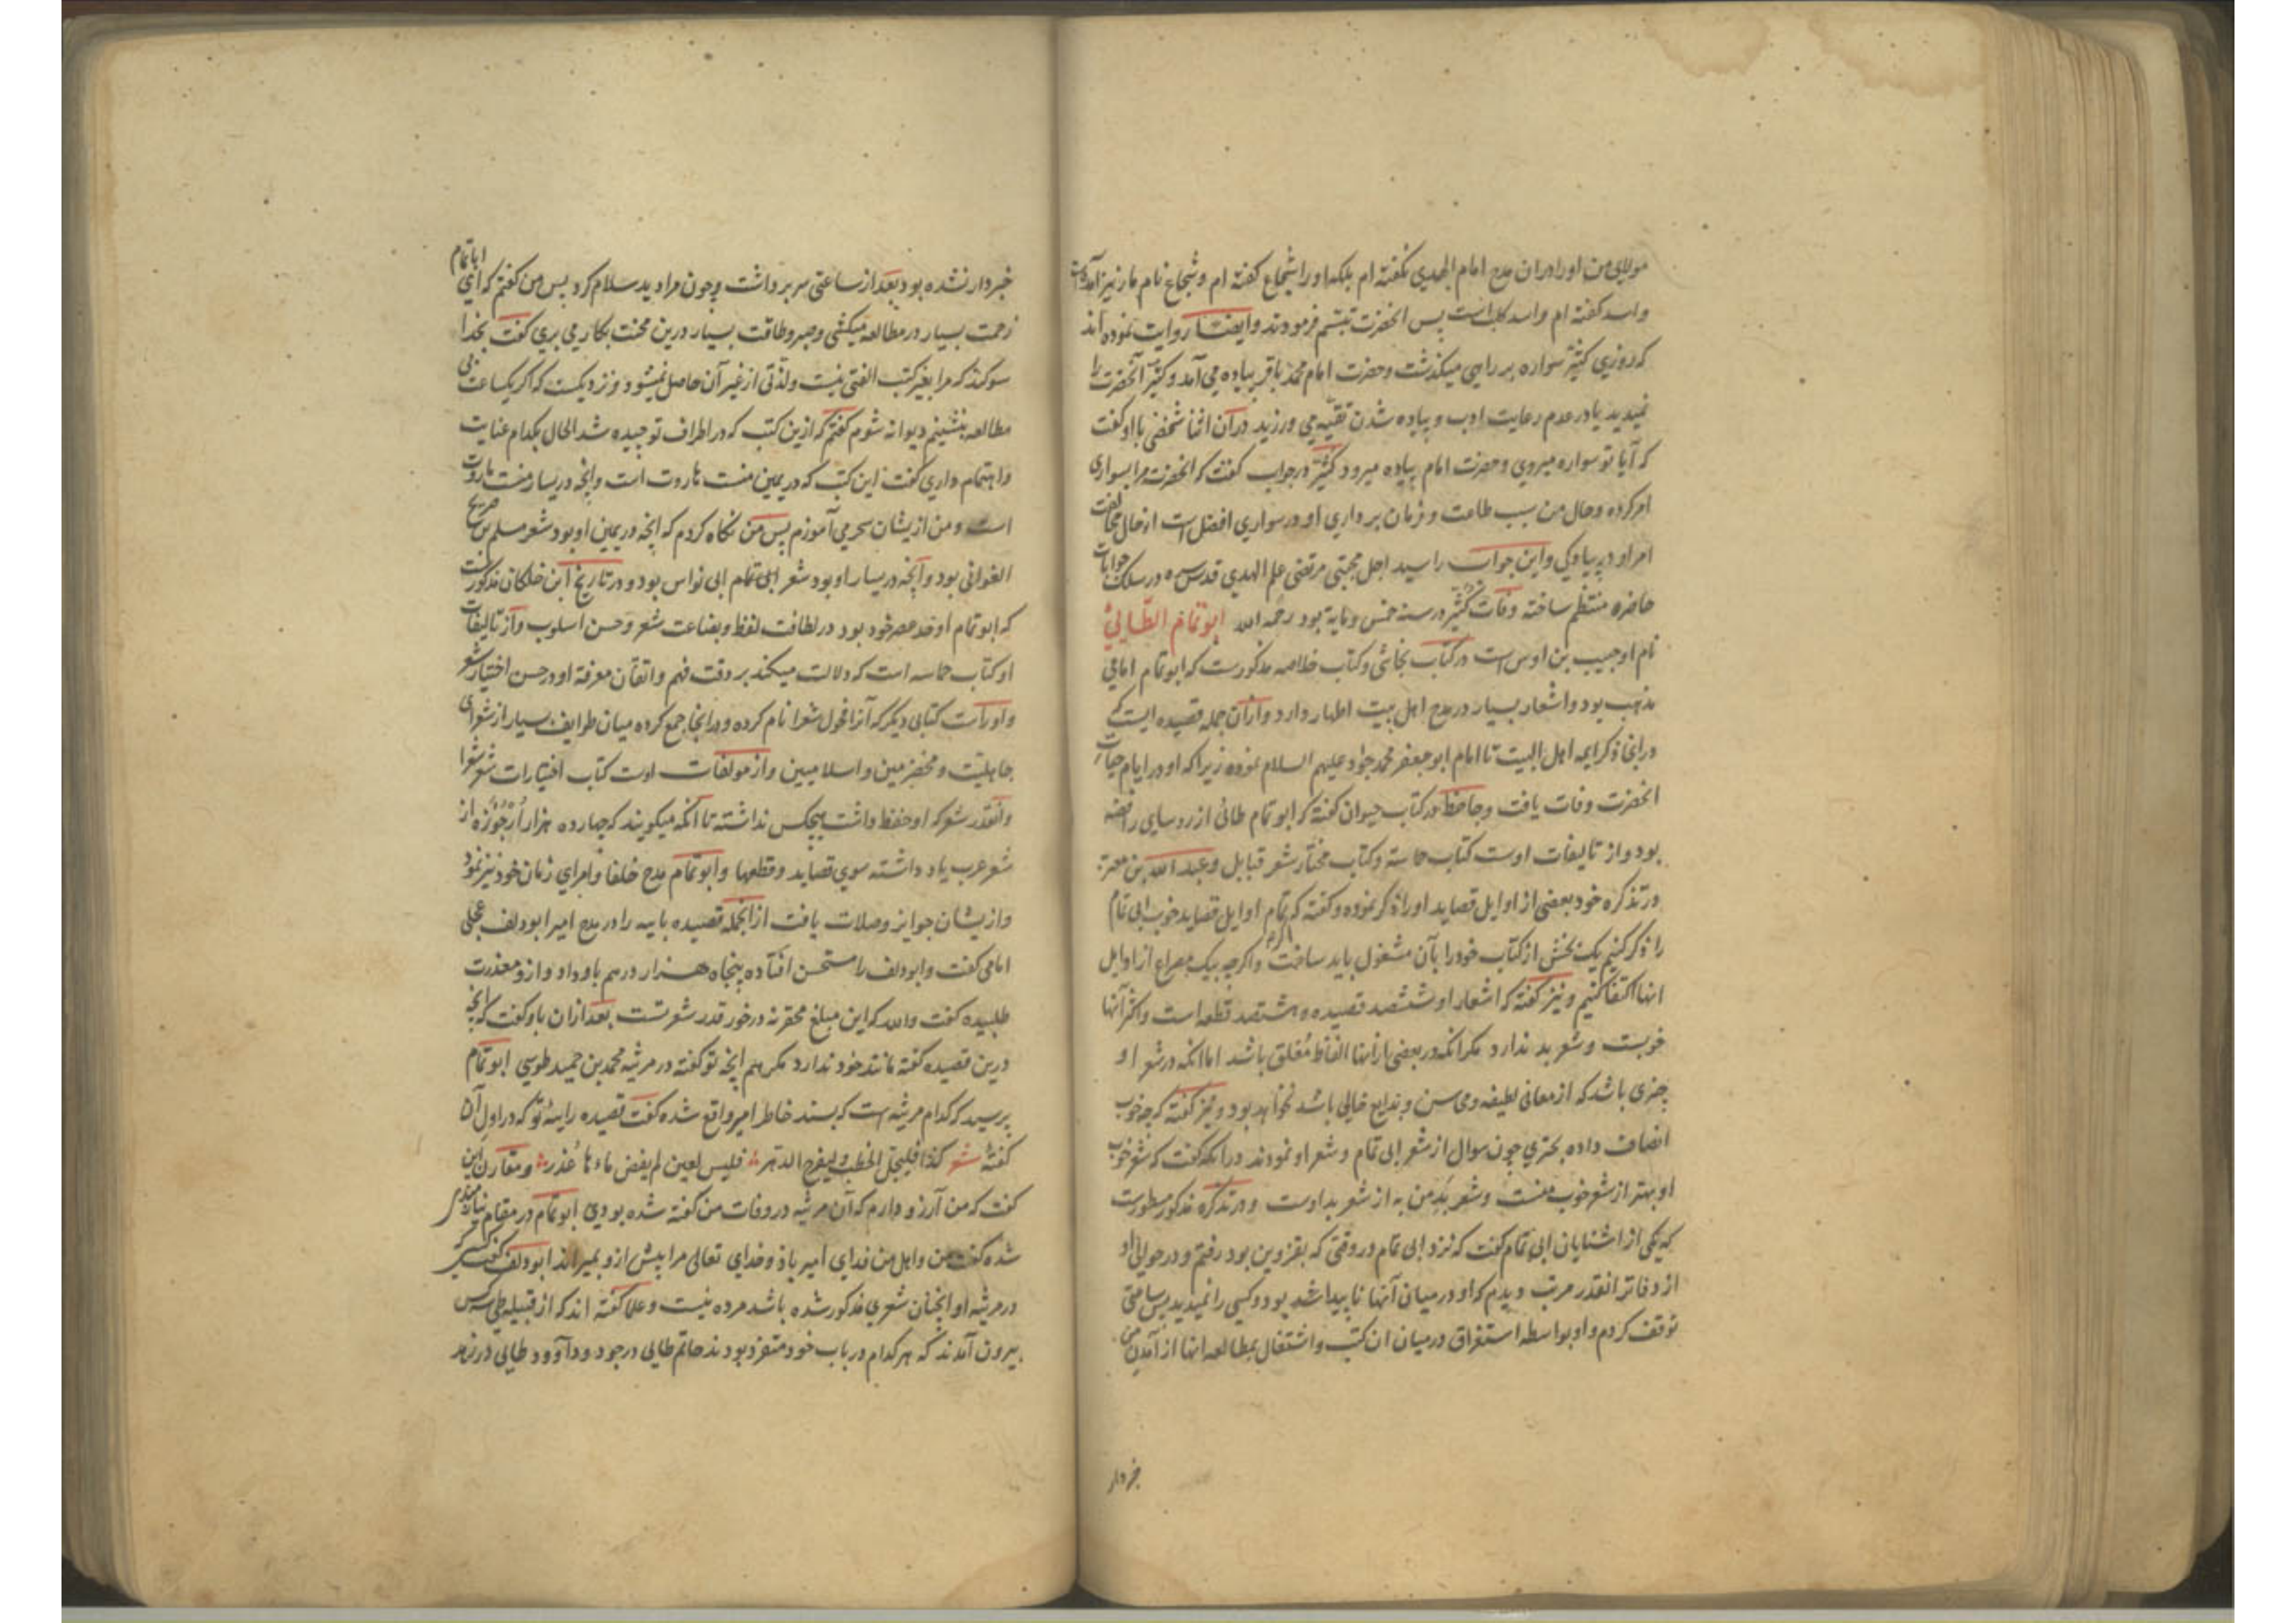 مولای من او را در ان مدح امام الهدی نکفته ام بلکه او را شجاع کفته ام و شجاع نام مار نیز آمده است
واسد کفته ام واسد کلب است پس انحضرت تبسّم فرمودند وایضا روایت نموده اند
که روزی کثیّر سواره بر راهی میکذشت وحضرت امام محمد باقر پیاده می آمد وکثیّر آنحضرت را
نمیدید یا در عدم رعایت ادب و پیاده شدن تقیّه می ورزید در آن اثنا شخصی با او کفت
که آیا تو سواره میروی وحضرت امام پیاده میرود کثیّر در جواب کفت که انحضرت مرا بسواری
امر کرده وحال من بسبب طاعت و فرمان برداری او در سواری افضل است از حال مخالفت
امر او در پیادکی واین جواب را سید اجل مجتبی مرتضی علم الهدی قدس سره در سلک جوابات
حاضره منتظم ساخته وفات کثیّر در سنه خمس ومایة بود رحمه الله ابو تمام الطّائیّ
نام او حبیب بن اوس است در کتاب نجاشی وکتاب خلاصه مذکورست که ابو تمام امامی
مذهب بود واشعار بسیار در مدح اهل بیت اطهار دارد واز آن جمله قصیده ایست که
در انجا ذکر ایمه اهل البیت تا امام ابو جعفر محمد جواد علیهم السلام نموده زیرا که او در ایام حیات
انحضرت وفات یافت وجاحظ در کتاب حیوان کفته که ابو تمام طائی از روسای رافضه
بود واز تالیفات اوست کتاب حماسه وکتاب مختار شعر قبایل وعبد الله بن معتز
در تذکره خود بعضی از اوایل قصاید او را ذکر نموده وکفته که اکر تمام اوایل قصاید خوب ابی تمام
را ذکر کنیم یک بخش از کتاب خود را بآن مشغول باید ساخت واکرچه بیک مصراع از اوایل
انها اکتفا کنیم ونیز کفته که اشعار او ششصد قصیده وهشتصد قطعه است واکثر آنها
خوبست وشعر بد ندارد مکر انکه در بعضی از انها الفاظ مُغلق باشد اما انکه در شعر او
چیزی باشد که از معانی لطیفه ومحاسن وبدایع خالی باشد نخواهد بود ونیز کفته که چه خوب
انصاف داده بحتری چون سوال از شعر ابی تمام وشعر او نمودند در انکه کفت که شعر خوب
او بهتر از شعر خوب منست وشعر بد من به از شعر بد اوست ودر تذکره مذکور مسطورست
که یکی از اشنایان ابی تمام کفت که نزد ابی تمام در وقتی که بقزوین بود رفتم ودر حوالی او
از دفاتر انقدر مرتب دیدم که او در میان آنها ناپیدا شد بود وکسی را نمیدید پس ساعتی
توقف کردم واو بواسطه استغراق در میان ان کتب واشتغال بمطالعه انها از آمدن من
خبردار
خبردار نشده بود بعد از ساعتی سر برداشت وچون مرا دید سلام کرد پس من کفتم که ای ابا تمام
زحمت بسیار در مطالعه میکشی وصبر وطاقت بسیار درین محنت بکار می بری کفت بخدا
سوکند که مرا بغیر کتب الفتی نیست ولذتی از غیر آن حاصل نمیشود ونزدیکست که اکر یکساعت بی
مطالعه بنشینم دیوانه شوم کفتم که ازین کتب که در اطراف تو چیده شد الحال بکدام عنایت
واهتمام داری کفت این کتب که در یمین منست هاروت است وانچه در یسار منست ماروت
است ومن از یشان سحر می آموزم پس من نکاه کردم که انچه در یمین او بود شعر مسلم بن صریح
الغوانی بود وآنچه در یسار او بود شعر ابی تمام ابی نواس بود ودر تاریخ ابن خلکان مذکورست
که ابو تمام اوحد عصر خود بود در لطافت لفظ وبضاعت شعر وحسن اسلوب واز تالیفات
او کتاب حماسه است که دلالت میکند بر دقت فهم واتقان معرفة او در حسن اختیار شعر
واوراست کتابی دیکر که آنرا فحول شعرا نام کرده ودر انجا جمع کرده میان طوایف بسیار از شعرای
جاهلیّت ومخضرمین واسلامیین واز مولفات اوست کتاب اختیارات شعر شعرا
وانقدر شعر که او حفظ داشت هیچکس نداشته تا انکه میکویند که چهارده هزار اُرْجُوْزَه از
شعر عرب یاد داشته سوی قصاید وقطعها وابو تمام مدح خلفا وامرای زمان خود نیز نمود
واز یشان جوایز وصلات یافت از انجمله قصیده باییه را در مدح امیر ابو دلف عجلی
امامی کفت وابو دلف را مستحسن افتاده پنجاه هزار درهم باو داد وازو معذرت
طلبیده کفت والله که این مبلغ محقر نه در خور قدر شعر تست بعد ازان باو کفت که انچه
درین قصیده کفته مانند خود ندارد مکر هم انچه تو کفته در مرثیه محمد بن حمید طوسی ابو تمام
پرسید که کدام مرثیه است که پسند خاطر امیر واقع شده کفت قصیده راییهٔ تو که در اول آن
کفتهٔ شعر کذا فلیجل الخطب ولیفدح الدهر فلیس لعین لم یفض ماءها عُذر ومقارن این
کفت که من آرزو دارم که آن مرثیه در وفات من کفته شده بودی ابو تمام در مقام نیازمندی
شده کفت من واهل من فدای امیر باد وخدای تعالی مرا پیش ازو بمیراند ابو دلف کفت کسی که
در مرثیه او انچنان شعری مذکور شده باشد مرده نیست وعلما کفته اند که از قبیله طی سه کس
بیرون آمدند که هر کدام در باب خود متفرد بودند حاتم طایی در جود وداوود طایی در زهد